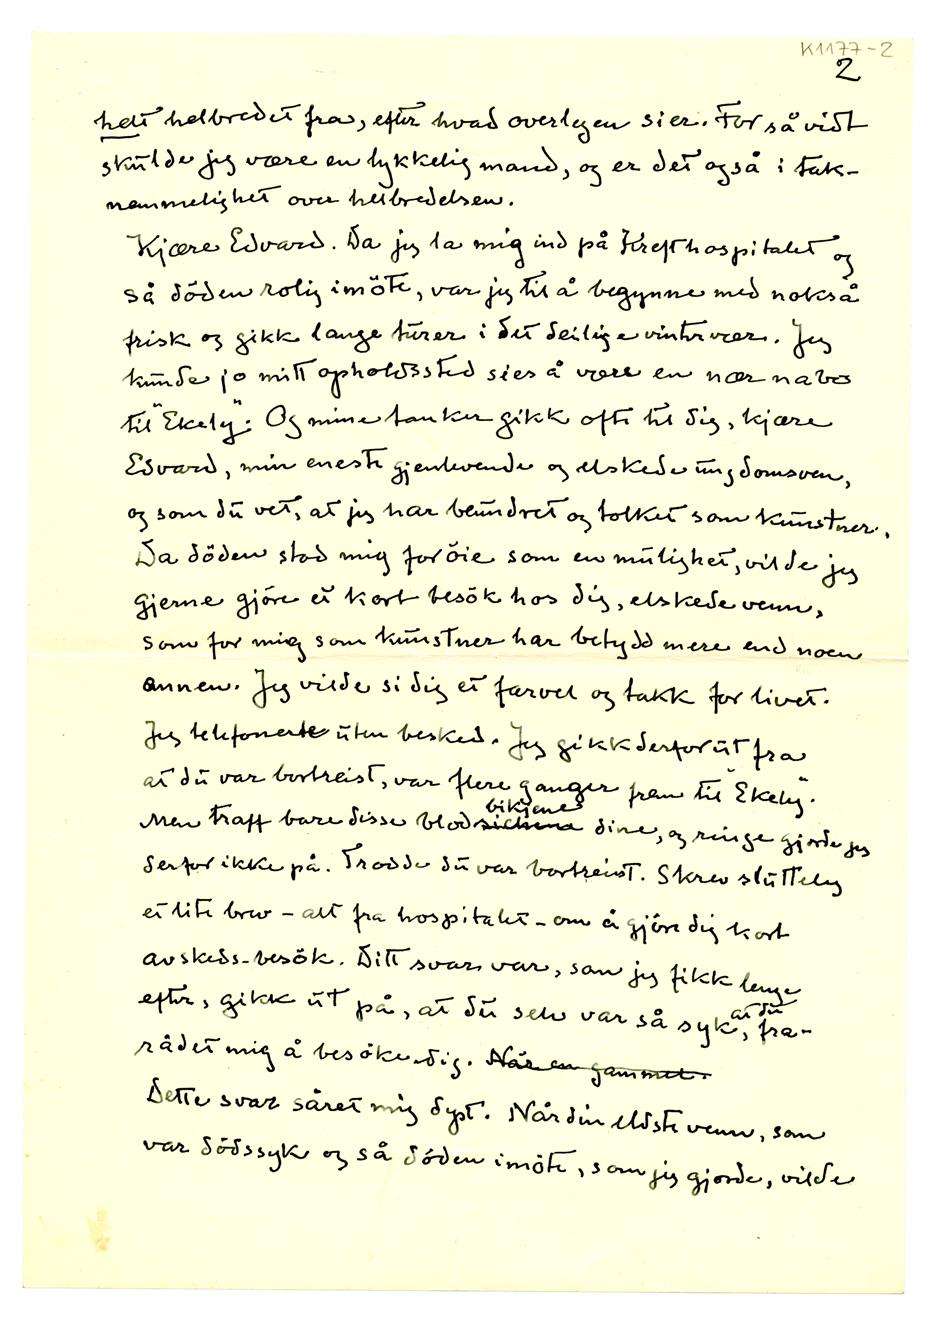 K1177-2
2
helt helbredet fra, efter hvad overlegen sier. For så vidt
skulde jeg være en lykkelig mand, og er det også i tak-
nemmelighet over helbredelsen.
Kjære Edvard. Da jeg la mig ind på Krefthospitalet og
så döden rolig imöte, var jeg til å begynne med nokså
frisk og gikk lange turer i det deilige vintervær. Jeg
kunde jo mitt opholdssted sies å være en nær nabo
til "Ekely". Og mine tanker gikk ofte til dig, kjære
Edvard, min eneste gjenlevende og elskede ungdomsven,
og som du vet, at jeg har beundret og tolket som kunstner.
Da döden stod mig for öie som en mulighet, vilde jeg
gjerne gjöre et kort besök hos dig, elskede venn,
som for mig som kunstner har betydd mere end noen
annen. Jeg vilde si dig et farvel og takk for livet.
Jeg telefonerte uten besked. Jeg gikk derfor ut fra
at du var bortreist, var flere ganger frem til "Ekely".
bikjene
Men traff bare disse blod dine, og ringe gjorde jeg
derfor ikke på. Trodde du var bortreist. Skrev sluttelig
et lite brev – alt fra hospitalet – om å gjöre dig kort
avskeds-besök. Ditt svar var, som jeg fikk lenge
efter, gikk ut på, at du selv var så syk, at du fra-
rådet mig å besöke dig. Når en gammel.
Dette svar såret mig dypt. Når din eldste venn, som
var dödssyk og så döden imöte, som jeg gjorde, vilde